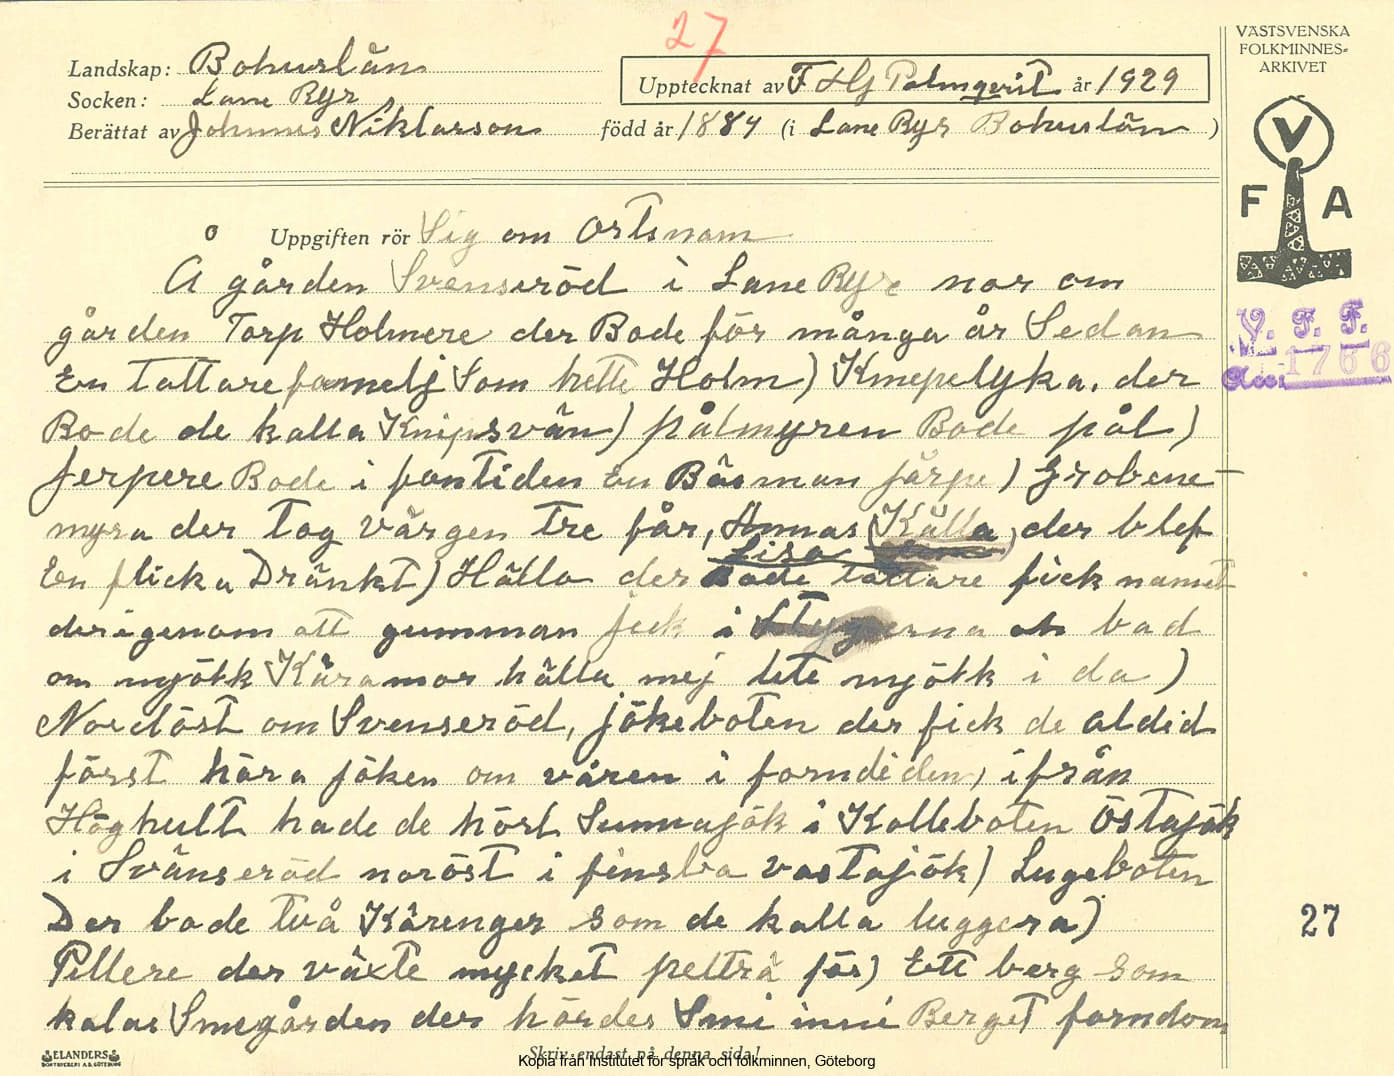 27
VÄSTSVENSKA
FOLKMINNES-
ARKIVET
Landskap: Bohuslän
Upptecknat av F Hj Palmqvist år 1929
Socken: Lane Ryr
Berättat av Johannes Niklasson född år 1884 (i Lane Ryr Bohuslän )
V
F A
Uppgiften rör Sig om Ortsnam
Å gården Svenseröd i Lane Ryr nor om
gården Torp Holmere der Bode för många år Sedan
En tattarefamelj Som hette Holm) Knepelyka. der
Bode de kalla Knipsvän) pålmyren Bode pål)
Jerpere Bode i forntiden En Båsman järpe) Grobene-
myra der tog värgen tre får, Annas Källa, der blef
Lisa
En flicka Dränkt) Hälla der Bode tattare fick namet
derigenom att gumman fick i Stygerna bad
om mjölk Kära mor hälla mej lite mjölk i da)
Nordöst om Svenseröd, jökeboten der fick de aldid
först höra jöken om våren i forndiden, ifrån
Höghult hade de hört Sunnajök i Kolleboten Östajök
i Svänseröd noröst i finsloa vastajök) Lugeboten
Der bode två Kärenger som de kalla luggera)
Pellere der växte mycket pelträ för) Ett berg som
kalas Smegården der hördes Smi inni Berget forndom
V. F. F.
Acc. 1766
27
ELANDERS
BOKTRYCKERI A.B. GÖTEBORG
Skriv endast på denna sida!
Kopia från Institutet för språk och folkminnen, Göteborg